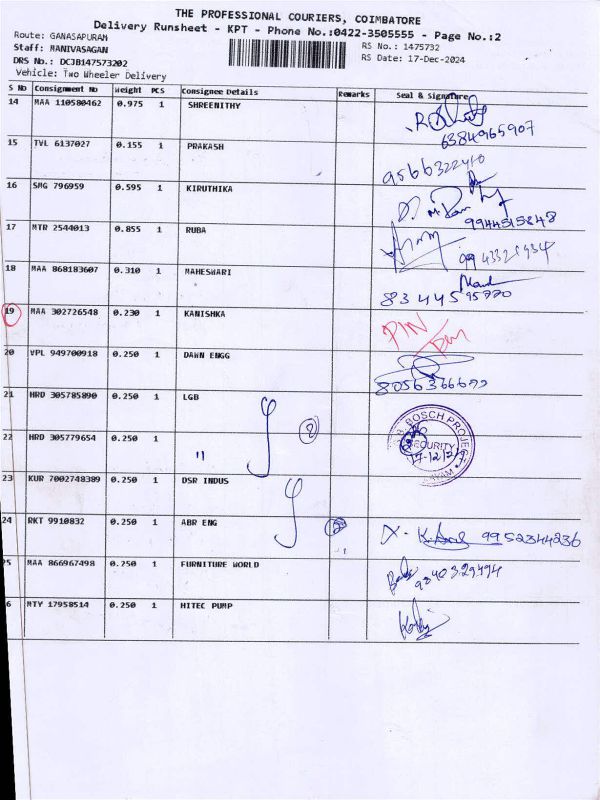 THE PROFESSIONAL COURIERS, COIMBATORE
Delivery Runsheet - KPT - Phone No.:0422-3505555 - Page No.:2
Route: GANASAPURAM
RS No.: 1475732
Staff: MANIVASAGAN
DRS No.: DCJB147573202
RS Date: 17-Dec-2024
Vehicle: Two Wheeler Delivery
S No Consignment No Weight PCS Consignee Details Remarks Seal & Signature
14 MAA 110580462 0.975 1 SHREENITHY
6384965907
15 TVL 6137027 0.155 1 PRAKASH
16 SMG 796959 0.595 1 KIRUTHIKA
9944515848
17 MTR 2544013 0.855 1 RUBA
18 MAA 868183607 0.310 1 MAHESWARI
83445 95770
19 MAA 302726548 0.230 1 KANISHKA
PIN
20 VPL 949700918 0.250 1 DAWN ENGG
21 HRD 305785890 0.250 1 LGB
2
BOSCH PROJECT
SECURITY
17-12/24
22 HRD 305779654 0.250 1 "
23 KUR 7002748389 0.250 1 DSR INDUS
24 RKT 9910832 0.250 1 ABR ENG
9952344236
25 MAA 866967498 0.250 1 FURNITURE WORLD
9340329494
6 MTY 17958514 0.250 1 HITEC PUMP